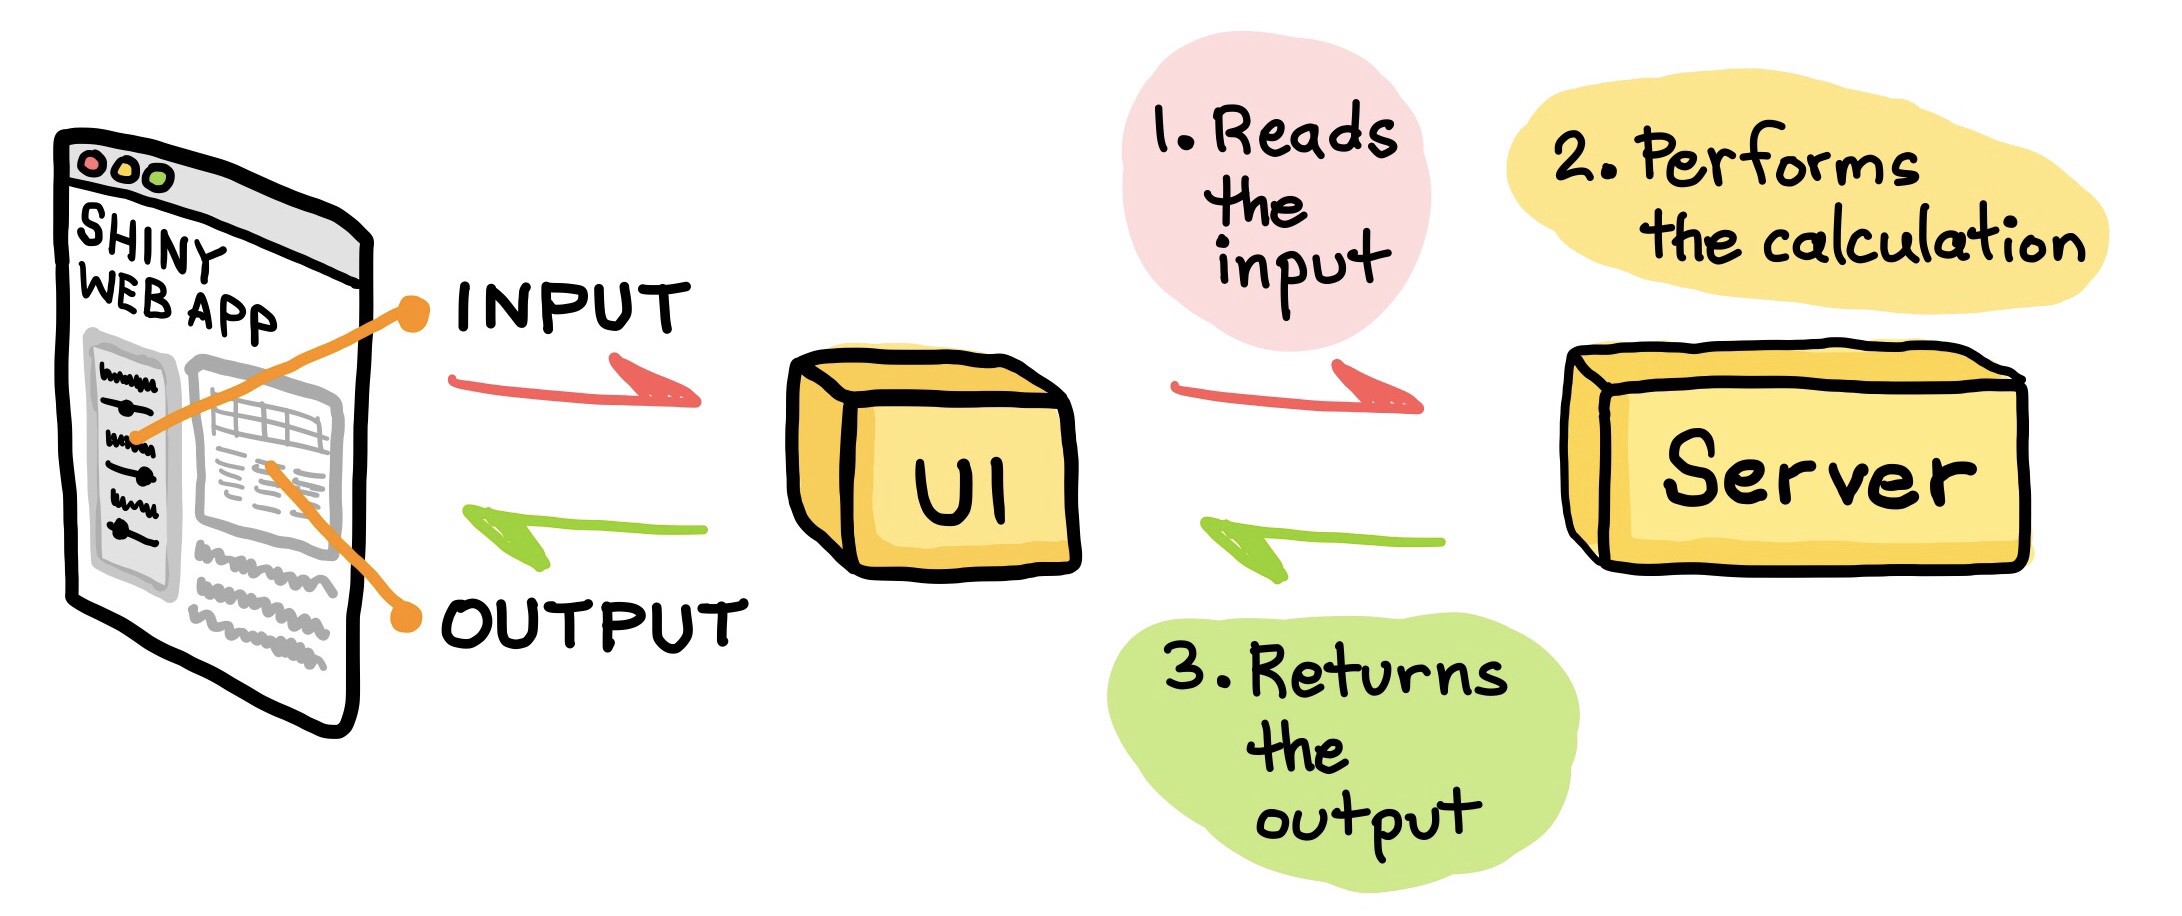 SHINY
WEB APP
INPUT
OUTPUT
UI
1. Reads
the
input
2. Performs
the calculation
Server
3. Returns
the
output